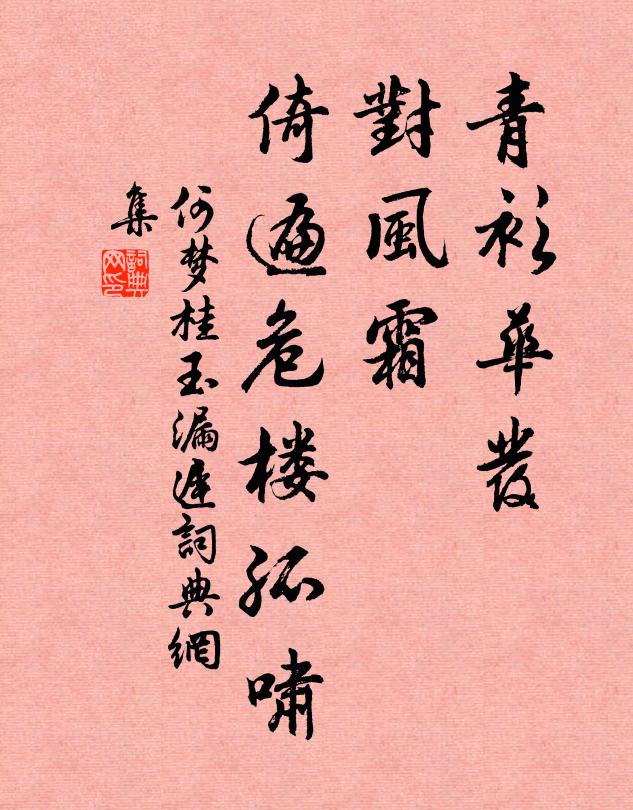 青衫華發
對風霜
倚遍危楼孤嘯
何梦桂玉漏遲詞典網
集
詞典
网印